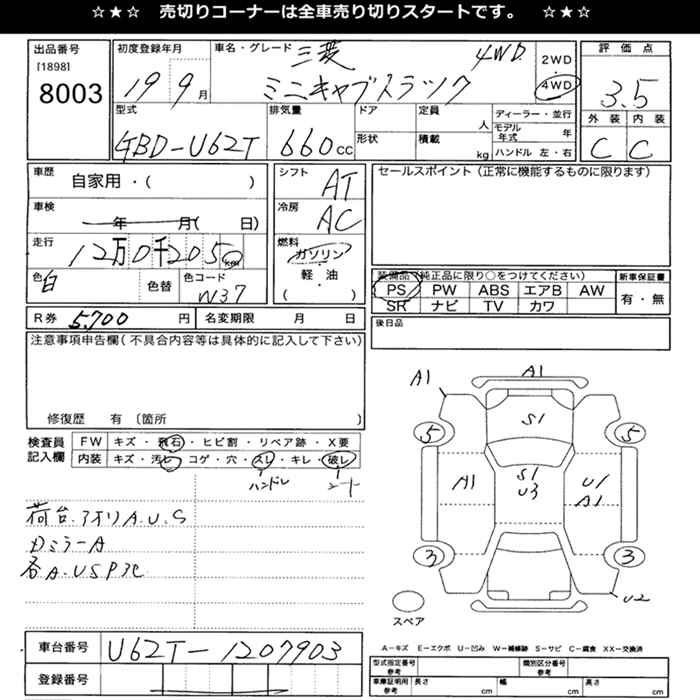 ☆★☆ 売切りコーナーは全車売り切りスタートです。 ☆★☆
出品番号
[1898]
8003
初度登録年月
19 9月
車名・グレード
三菱 4WD
ミニキャブトラック
2WD
4WD
評価点
3.5
外装 内装
C C
型式
GBD-U62T
排気量
660cc
ドア
形状
定員
人
積載
kg
ディーラー・並行
モデル年式 年
ハンドル 左・右
車歴
自家用・( )
車検
年 月( 日)
走行
12万0千205km
色
白
色替
色コード
W37
シフト
AT
冷房
AC
燃料
ガソリン
軽・油
( )
セールスポイント(正常に機能するものに限ります)
装備品(純正品に限り○をつけてください)
PS PW ABS エアB AW
SR ナビ TV カワ
新車保証書
有・無
R券 5,700円
名変期限 月 日
後日品
注意事項申告欄(不具合内容等は具体的に記入して下さい)
修復歴 有 〔箇所 〕
検査員記入欄
FW キズ・飛石・ヒビ割・リペア跡・X要
内装 キズ・汚レ・コゲ・穴・スレ・キレ・破レ
ハンドル シート
荷台.アオリA.U.S
Dミラー A
各A.U S P
A1 A1
S1
5 5
A1
S1
U3
U1
A1
3 3
U2
スペア
A-キズ E-エクボ U-凹み W-補修跡 S-サビ C-腐食 XX-交換済
車台番号 U62T-1207903
登録番号
型式指定番号 参考
類別区分番号 参考
車庫証明用 参考 長さ cm 幅 cm 高さ cm